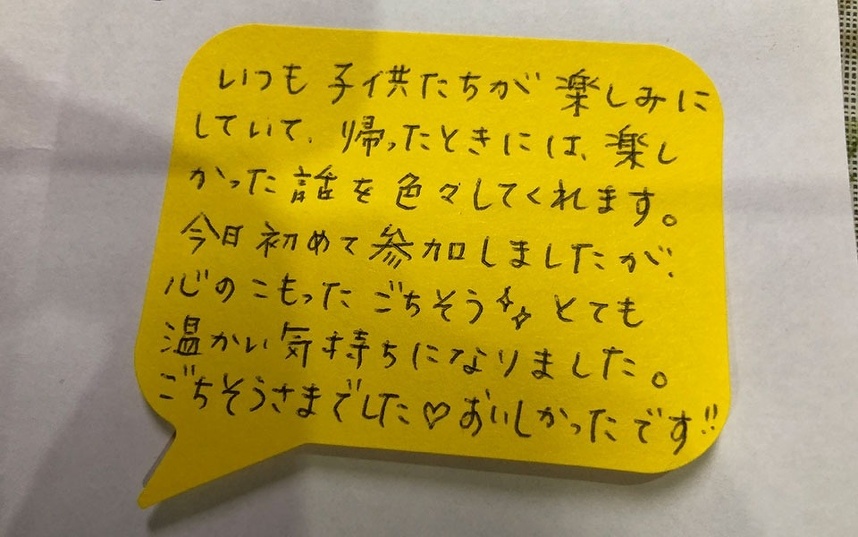 いつも子供たちが楽しみに
していて、帰ったときには、楽し
かった話を色々してくれます。
今日初めて参加しましたが、
心のこもったごちそう✨とても
温かい気持ちになりました。
ごちそうさまでした♡おいしかったです!!